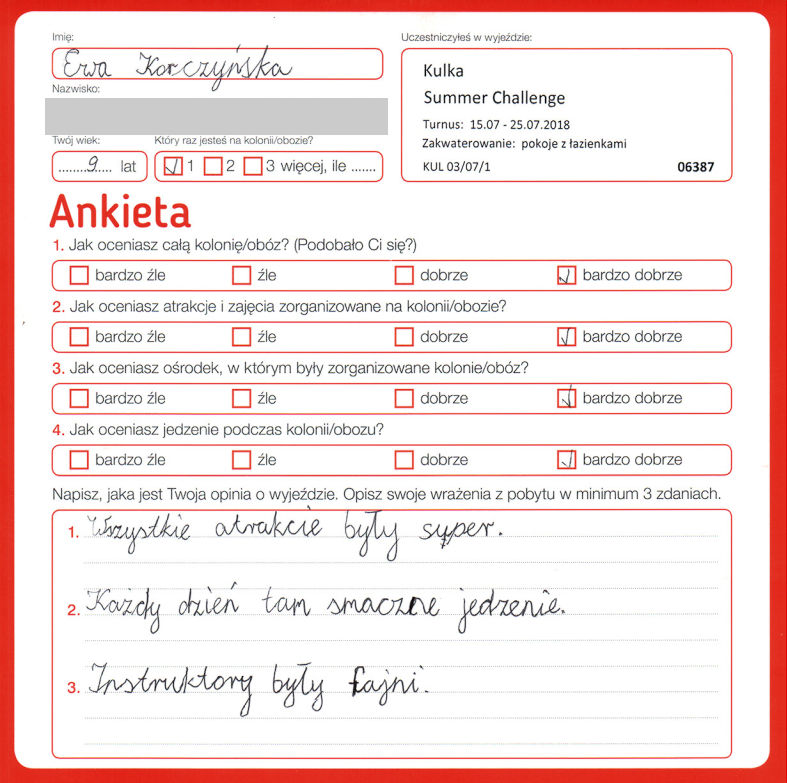 Imię:
Ewa Korczyńska
Nazwisko:
Twój wiek:
Który raz jesteś na kolonii/obozie?
........9..... lat
1 2 3 więcej, ile .......
Uczestniczyłeś w wyjeździe:
Kulka
Summer Challenge
Turnus: 15.07 - 25.07.2018
Zakwaterowanie: pokoje z łazienkami
KUL 03/07/1 06387
Ankieta
1. Jak oceniasz całą kolonię/obóz? (Podobało Ci się?)
bardzo źle źle dobrze bardzo dobrze
2. Jak oceniasz atrakcje i zajęcia zorganizowane na kolonii/obozie?
bardzo źle źle dobrze bardzo dobrze
3. Jak oceniasz ośrodek, w którym były zorganizowane kolonie/obóz?
bardzo źle źle dobrze bardzo dobrze
4. Jak oceniasz jedzenie podczas kolonii/obozu?
bardzo źle źle dobrze bardzo dobrze
Napisz, jaka jest Twoja opinia o wyjeździe. Opisz swoje wrażenia z pobytu w minimum 3 zdaniach.
1. Wszystkie atrakcie były syper.
2. Każdy dzień tam smaczne jedzenie.
3. Instruktory były fajni.